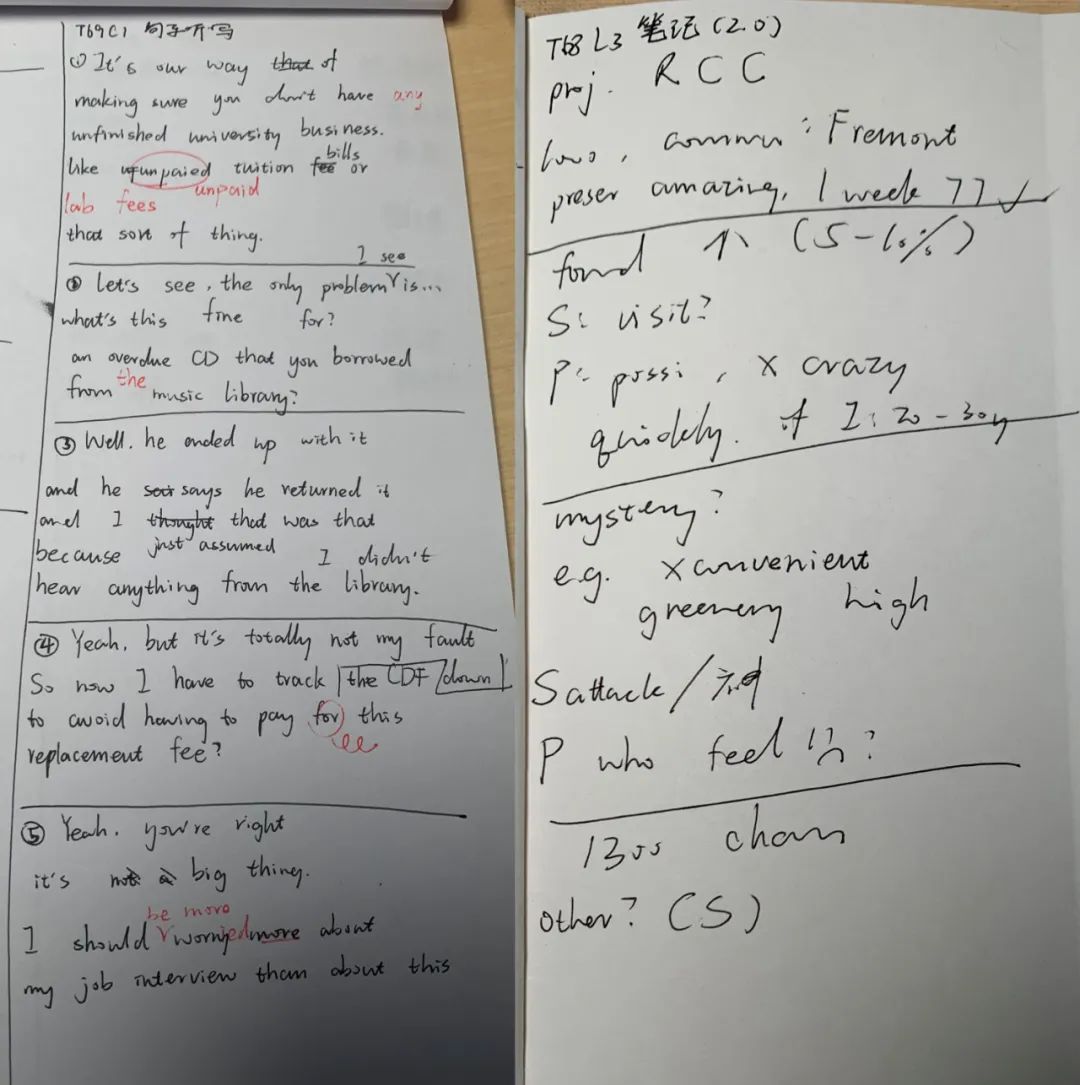 T69 C1 句子听写
① It's our way that of
making sure you don't have any
unfinished university business.
bills
like unpaied tuition fee or
unpaid
lab fees
that sort of thing.
I see
② Let's see, the only problem is...
what's this fine for?
an overdue CD that you borrowed
from the music library?
③ Well. he ended up with it
and he says he returned it
and I thought that was that
just assumed
because I didn't
hear anything from the library.
④ Yeah, but it's totally not my fault
So now I have to track the CD down
to avoid having to pay for this
replacement fee?
⑤ Yeah. you're right
it's not a big thing.
be more
I should worried more about
my job interview than about this
T68 L3 笔记 (2.0)
proj. RCC
commu: Fremont
preser amazing, 1 week 77 ✓
found ↑ (5-10%)
S: visit?
P: possi, x crazy
quickely. if I: 20-30y
mystery?
e.g. x convenient
greenery high
S attack / 神
P who feel ?
1300 cham
other? (S)